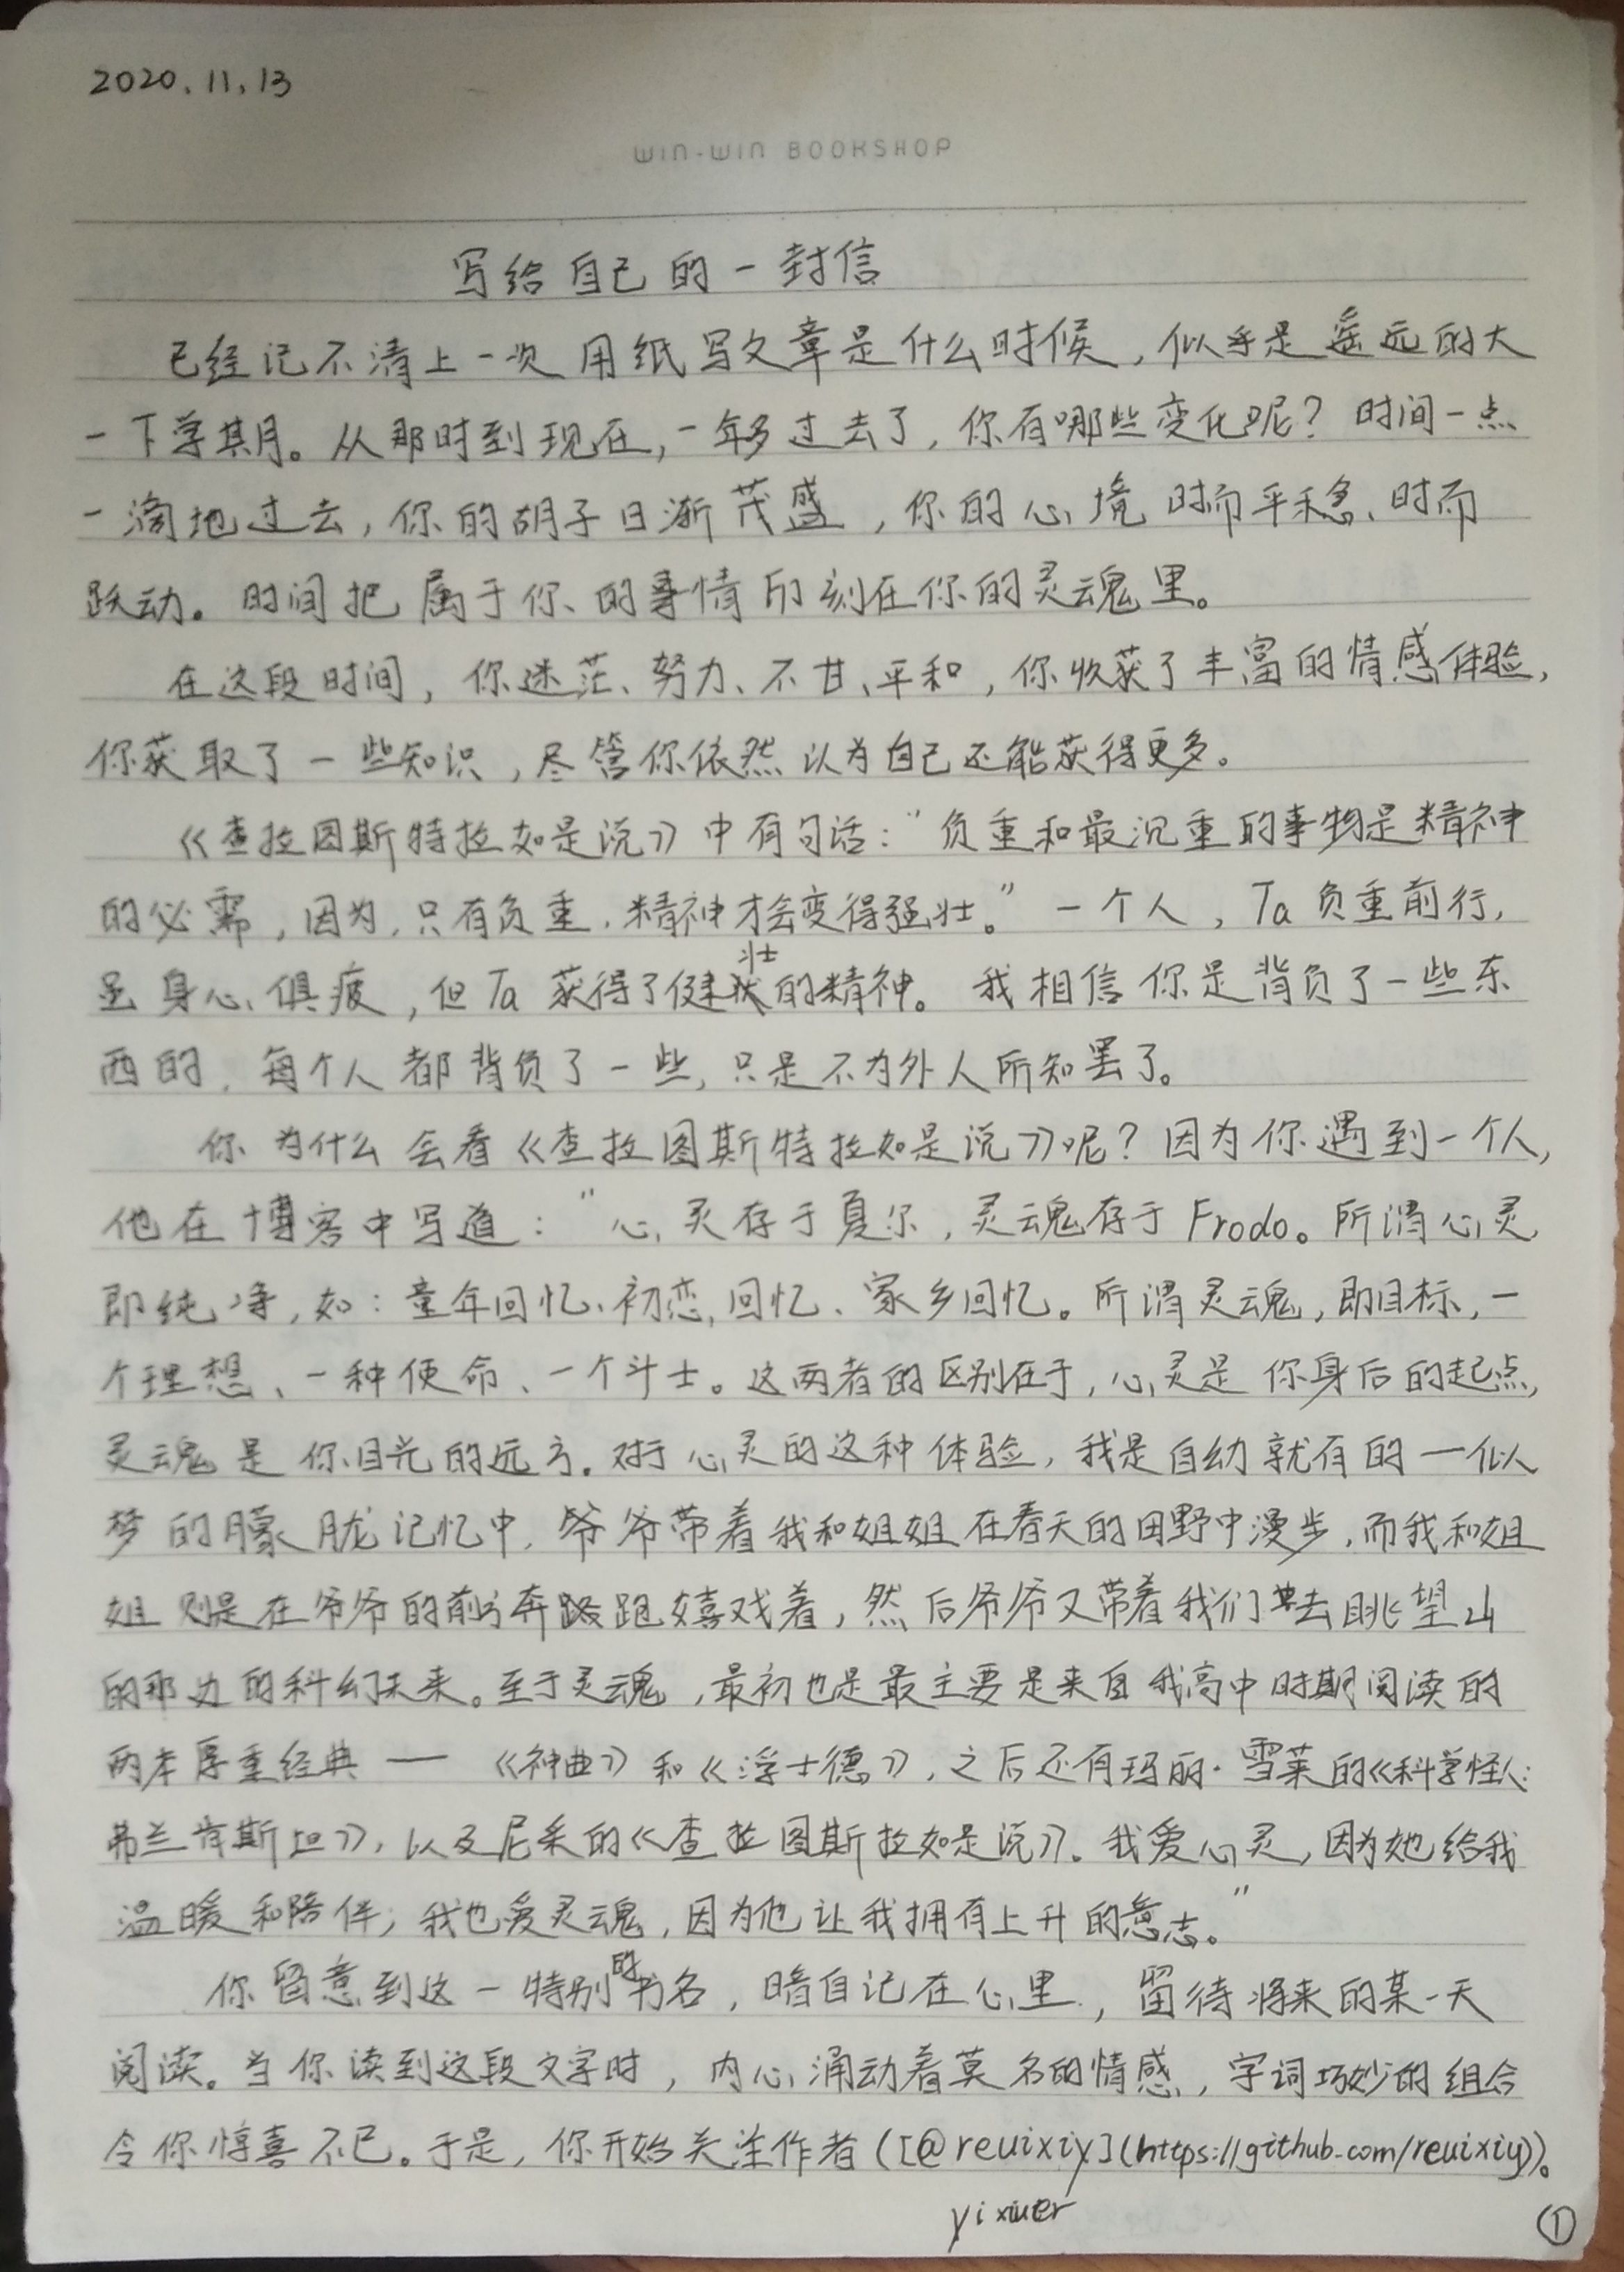 2020.11.13
WIN-WIN BOOKSHOP
写给自己的一封信
已经记不清上一次用纸写文章是什么时候，似乎是遥远的大
一下学期。从那时到现在，一年多过去了，你有哪些变化呢？时间一点
一滴地过去，你的胡子日渐茂盛，你的心境时而平稳、时而
跃动。时间把属于你的事情印刻在你的灵魂里。
在这段时间，你迷茫、努力、不甘、平和，你收获了丰富的情感体验，
你获取了一些知识，尽管你依然认为自己还能获得更多。
《查拉图斯特拉如是说》中有句话：“负重和最沉重的事物是精神
的必需，因为，只有负重，精神才会变得强壮。”一个人，Ta负重前行，
虽身心俱疲，但Ta获得了健壮的精神。我相信你是背负了一些东
西的，每个人都背负了一些，只是不为外人所知罢了。
你为什么会看《查拉图斯特拉如是说》呢？因为你遇到一个人，
他在博客中写道：“心灵存于夏尔，灵魂存于Frodo。所谓心灵
即纯净，如：童年回忆、初恋回忆、家乡回忆。所谓灵魂，即目标，一
个理想、一种使命、一个斗士。这两者的区别在于，心灵是你身后的起点，
灵魂是你目光的远方。对于心灵的这种体验，我是自幼就有的—似
梦的朦胧记忆中，爷爷带着我和姐姐在春天的田野中漫步，而我和姐
姐则是在爷爷的前方奔跑嬉戏着，然后爷爷又带着我们去眺望山
的那边的科幻未来。至于灵魂，最初也是最主要是来自我高中时期阅读的
两本厚重经典——《神曲》和《浮士德》，之后还有玛丽·雪莱的《科学怪人：
弗兰肯斯坦》，以及尼采的《查拉图斯拉如是说》。我爱心灵，因为她给我
温暖和陪伴；我也爱灵魂，因为他让我拥有上升的意志。”
你留意到这一特别的书名，暗自记在心里，留待将来的某一天
阅读。当你读到这段文字时，内心涌动着莫名的情感，字词巧妙的组合
令你惊喜不已。于是，你开始关注作者（[@reuixiy](https://github.com/reuixiy)）。
yixiuer
①